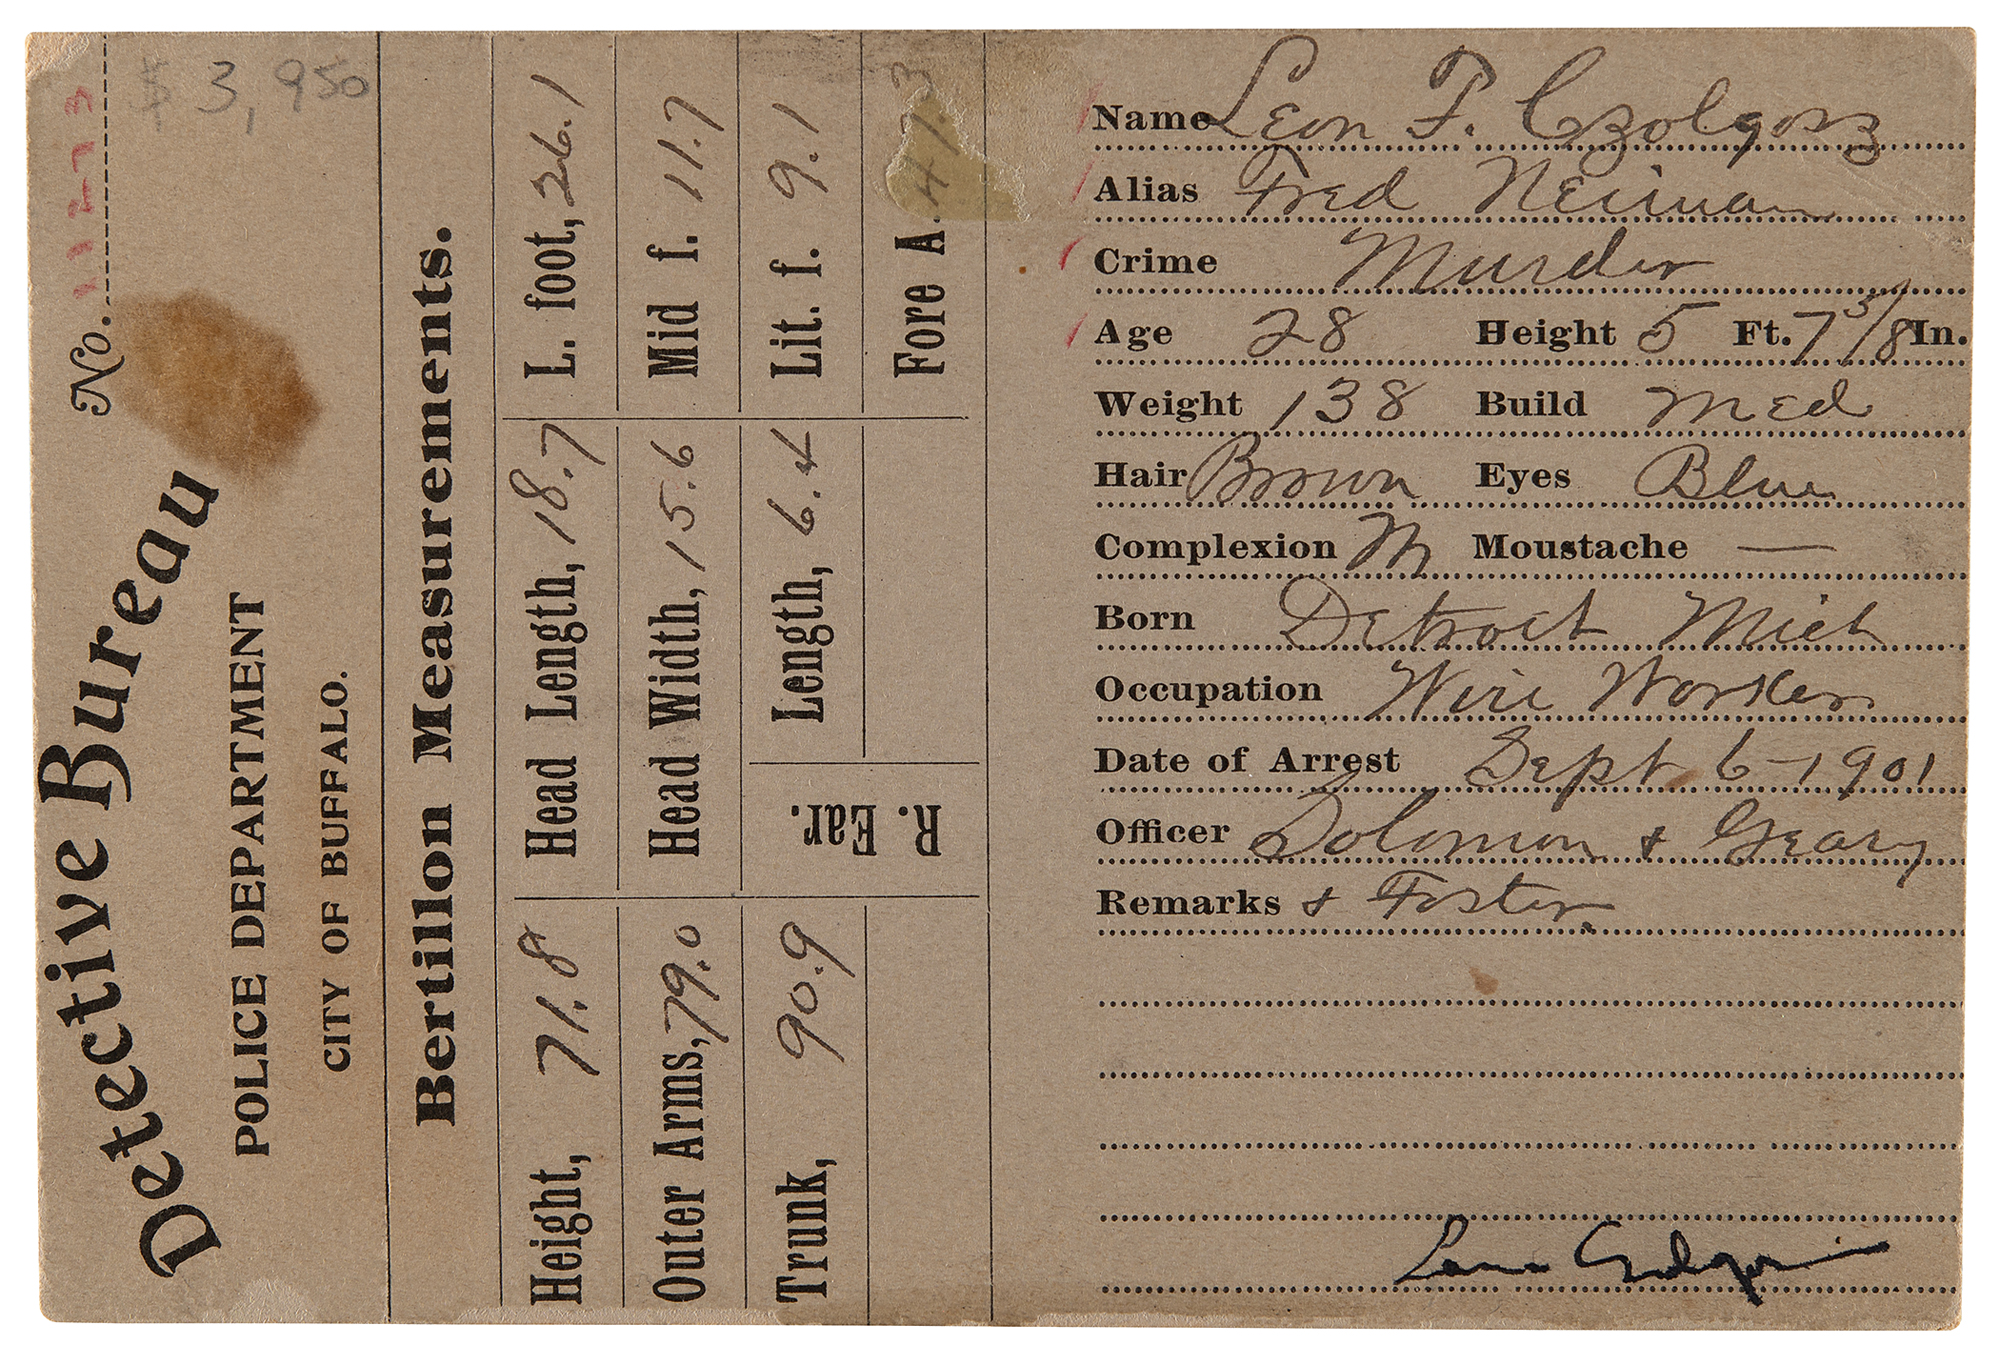 $ 3,950
No. 11273
Detective Bureau
POLICE DEPARTMENT
CITY OF BUFFALO.
Bertillon Measurements.
Height, 71.8
Head Length, 18.7
L. foot, 26.1
Outer Arms, 79.0
Head Width, 15.6
Mid f. 11.7
Trunk, 90.9
R. Ear.
Length, 6.4
Lit. f. 9.1
Fore A. 47.3
Name Leon F. Czolgosz
Alias Fred Neiman
Crime Murder
Age 28 Height 5 Ft. 7 3/8 In.
Weight 138 Build Med
Hair Brown Eyes Blue
Complexion M Moustache —
Born Detroit Mich
Occupation Wire Worker
Date of Arrest Sept 6-1901
Officer Solomon & Geary
Remarks & Foster